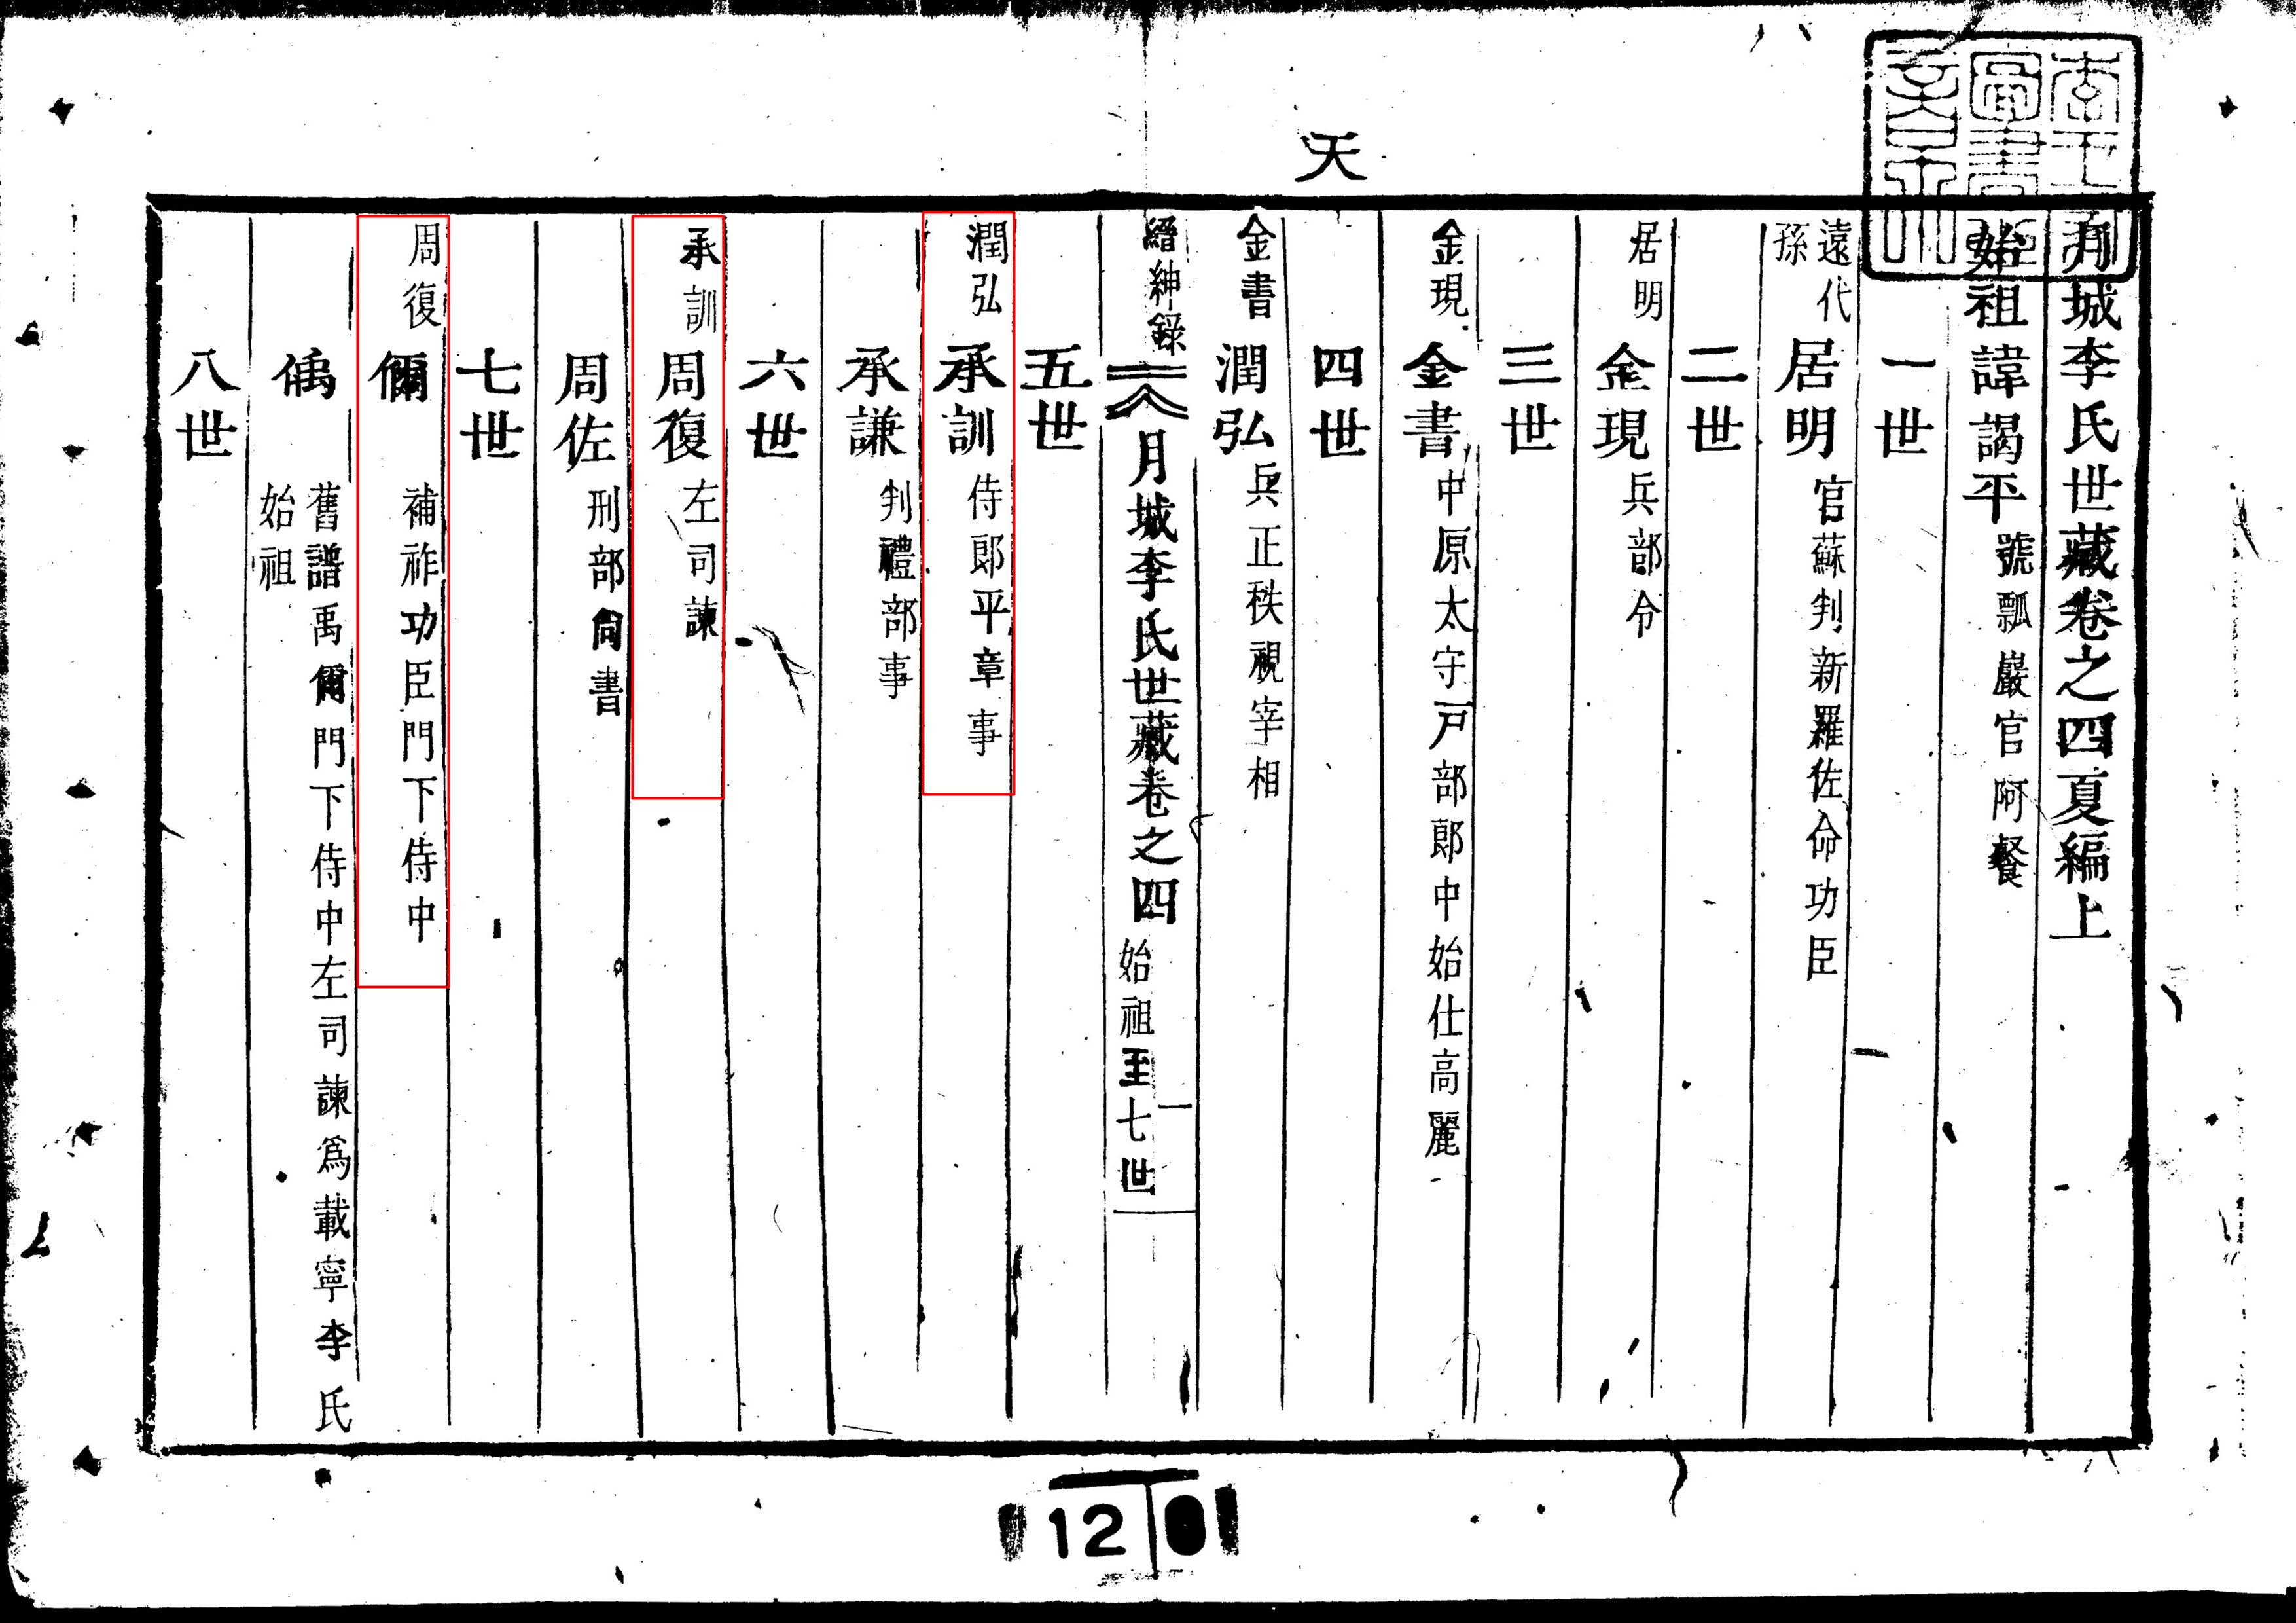 天
月城李氏世藏卷之四夏編上
始祖諱謁平 號瓢巖官阿餐
一世
遠代孫 居明 官蘇判新羅佐命功臣
二世
居明 金現 兵部令
三世
金現 金書 中原太守戸部郎中始仕高麗
四世
金書 潤弘 兵正秩視宰相
縉紳錄 月城李氏世藏卷之四 始祖至七世 一
五世
潤弘 承訓 侍郎平章事
承謙 判禮部事
六世
承訓 周復 左司諫
周佐 刑部尙書
七世
周復 儞 補祚功臣門下侍中
偊 舊譜禹偁門下侍中左司諫爲載寧李氏
始祖
八世
12